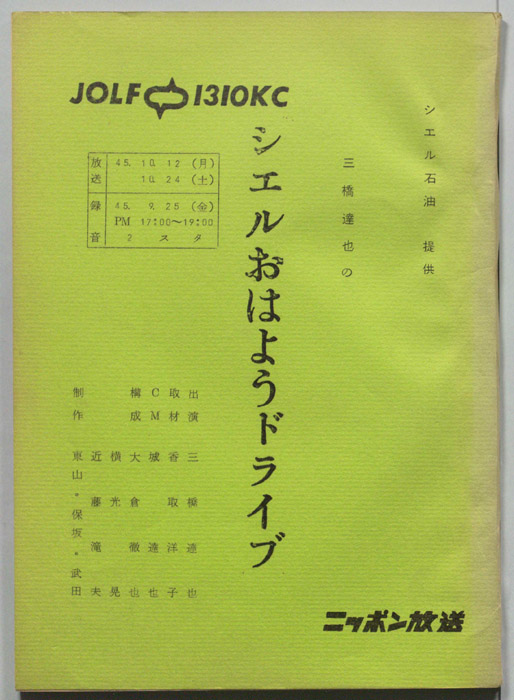 JOLF 1310KC
シエル石油 提供
三橋達也の
シエルおはようドライブ
放送 45. 10. 12 (月)
10. 24 (土)
録音 45. 9. 25 (金)
PM 17:00~19:00
2 スタ
出演 三橋達也
取材 香取洋子
CM 城達也
構成 大倉徹也
横光晃
近藤滝夫
制作 東山・保坂・武田
ニッポン放送